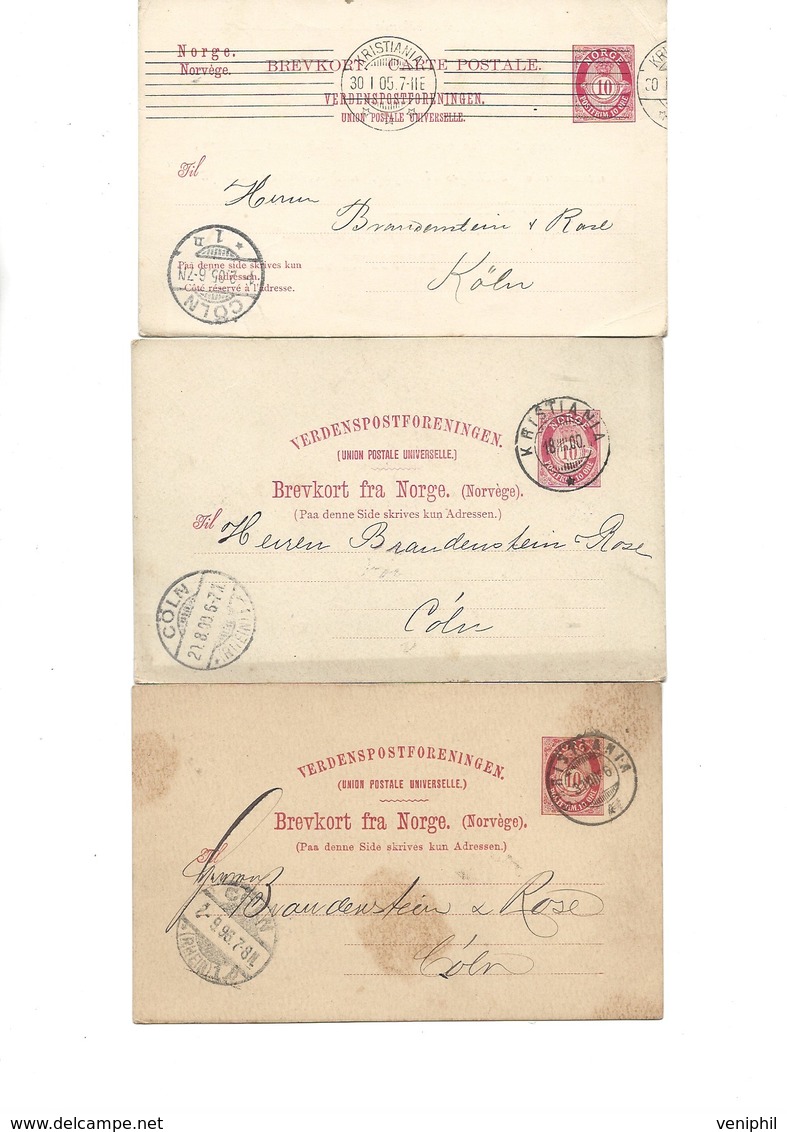 Norge.
Norvège.
BREVKORT. CARTE POSTALE.
VERDENSPOSTFORENINGEN.
UNION POSTALE UNIVERSELLE.
KRISTIANIA
30 I 05.7-11E
14
NORGE
10
POSTFRIM 10 ØRE
KRI
30 I
Til
Herrn
Brandenstein & Rose
Köln
Paa denne side skrives kun
adressen.
Côté réservé à l'adresse.
CÖLN
1
VERDENSPOSTFORENINGEN.
(UNION POSTALE UNIVERSELLE.)
Brevkort fra Norge. (Norvège).
(Paa denne Side skrives kun Adressen.)
KRISTIANIA
NORGE
10
Til
Herren Brandenstein & Rose
Cöln
CÖLN
(RHEIN)
VERDENSPOSTFORENINGEN.
(UNION POSTALE UNIVERSELLE.)
Brevkort fra Norge. (Norvège).
(Paa denne Side skrives kun Adressen.)
10
Til
Herren
Brandenstein & Rose
Cöln
CÖLN
2-9.96.7-8N.
(RHEIN) 1
www.delcampe.net
veniphil